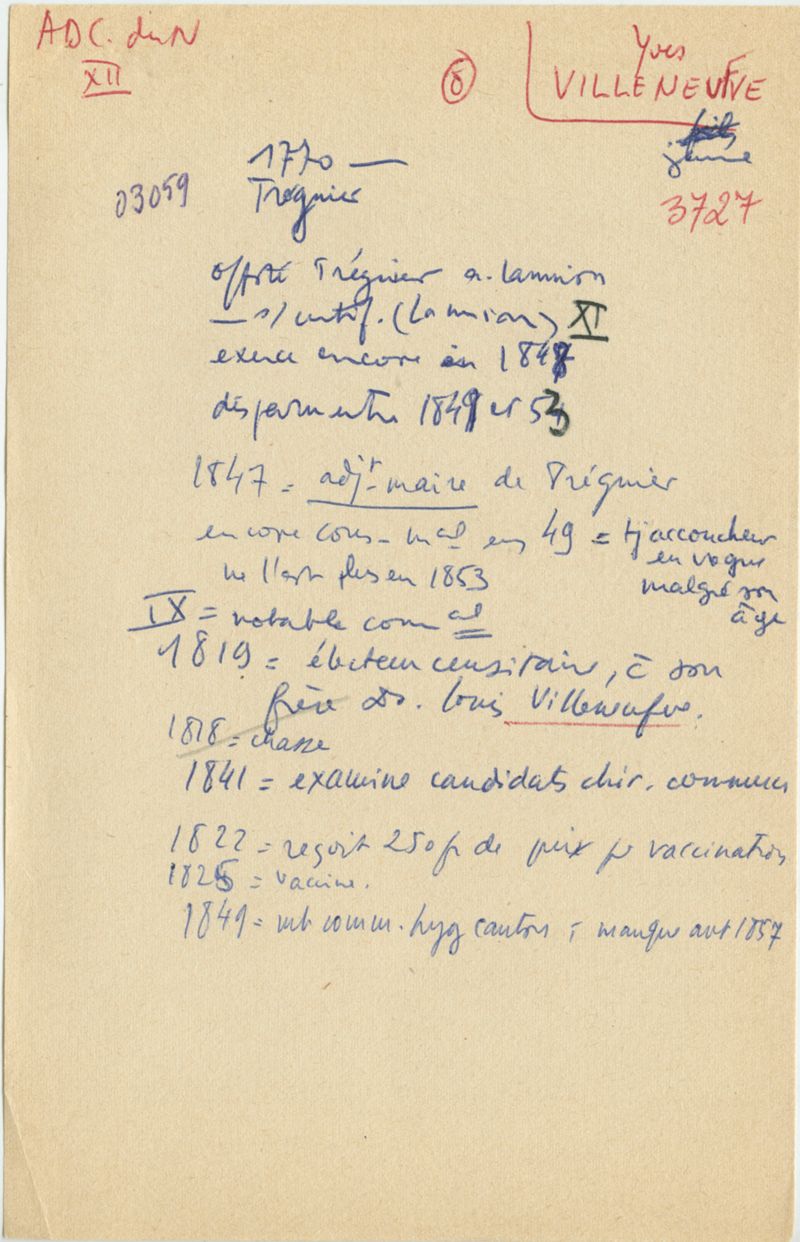 ADC. du N
XII
Yves
VILLENEUFVE
jeune
1770 —
03059
Tréguier
3727
offsté Tréguier a. Lannion
— s/ certif. (Lannion) XI
exerce encore en 1848
disparu entre 1849 et 53
1847 = adjt-maire de Tréguier
encore cons- mal en 49 = tj accoucheur
en vogue
ne l'est plus en 1853
malgré son
âge
IX = notable com al
1819 = électeur censitaire, c son
frère Dr. Louis Villeneufve.
1818 = chasse
1841 = examine candidats chir. commun
1822 = reçoit 250 fr de prix pr vaccination
1825 = vaccine.
1849 = mb comm. hyg canton ; manque avt 1857